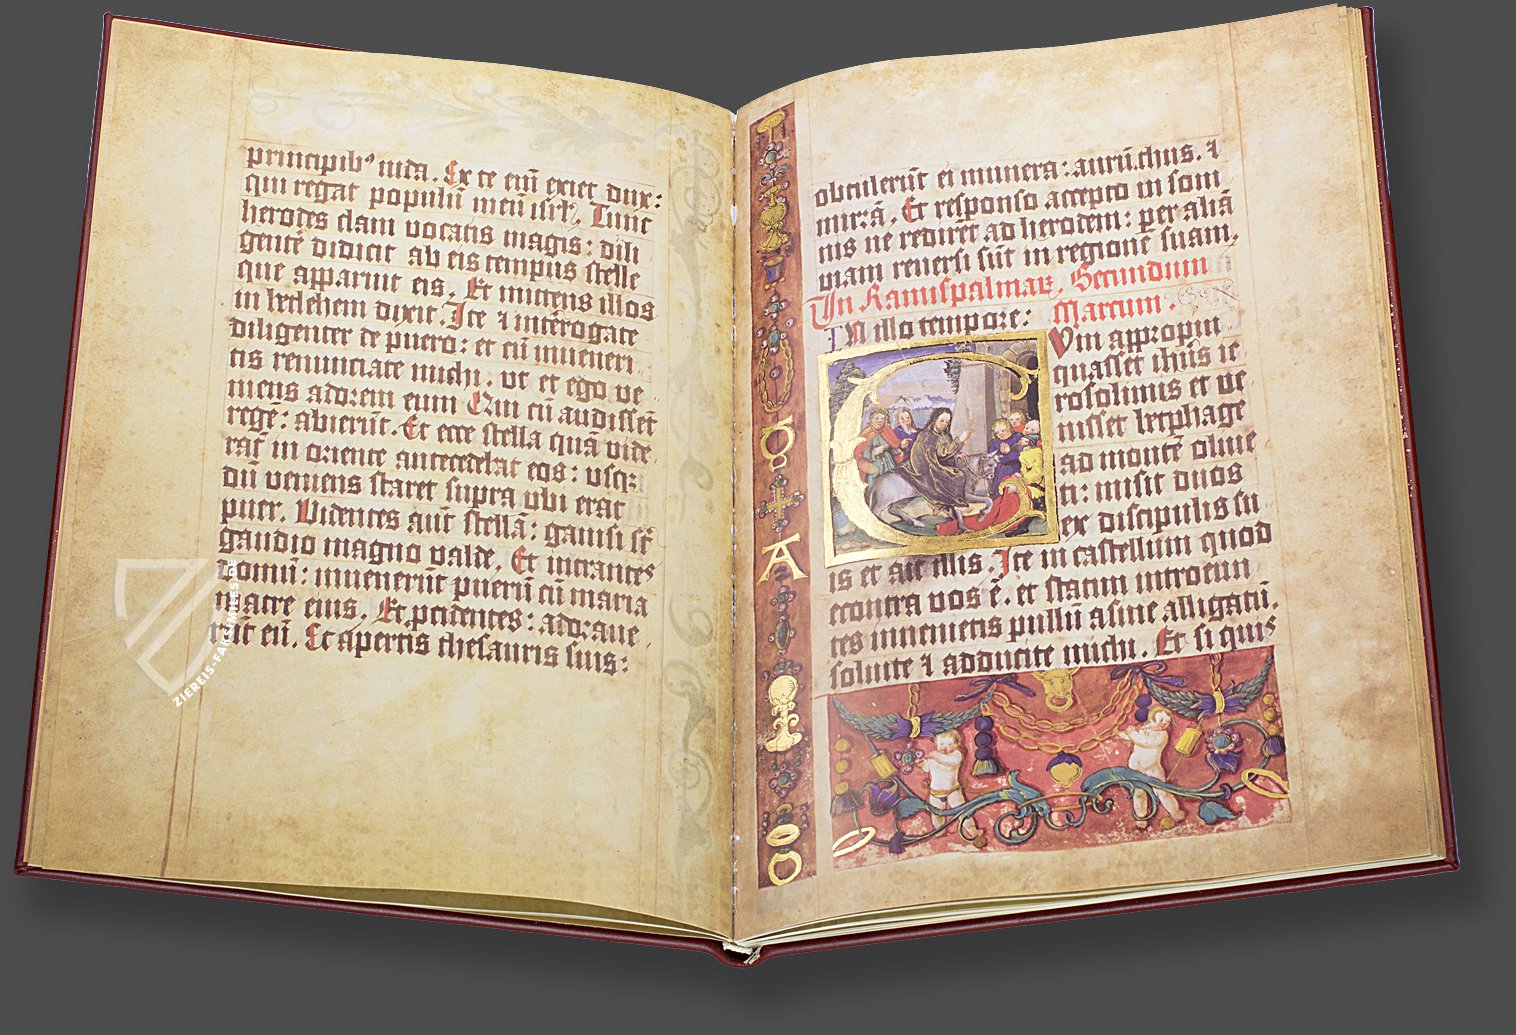 principib⁹ iuda. Ex te em̄ exiet dux:
qui regat populū meū isrl̄. Tunc
herodes clam vocatis magis: dili
gentē didicit ab eis tempus stelle
que apparuit eis. Et mittens illos
in bethlehem dixit. Ite ⁊ interrogate
diligenter de puero: et cū inueneri
tis renunciate michi. vt et ego ve
niens adorem eum Qui cū audissēt
regē: abierūt. Et ecce stella quā vide
rāt in oriente antecedebat eos: usq̄
dū veniens staret supra vbi erat
puer. Videntes aut̄ stellā: gauisi sūt
gaudio magno valde. Et intrantes
domū: inuenerūt puerū cū maria
matre eius. Et p̄cidentes: adoraue
rūt eū. Et apertis thesauris suis:
ZIEREIS-FACSIMILES.DE
obtulerūt ei munera: aurū. thus. ⁊
mirrā. Et responso accepto in som
nis ne redirēt ad herodem: per aliā
uiam reuersi sūt in regionē suam.
In Ramispalmaꝝ. Secundum
Marcum.
IN illo tempore:
Cum appropin
quasset ihūs ie
rosolimis et ve
nisset betphage
ad montē oliue
ti: misit duos
ex discipulis su
is et ait illis. Ite in castellum quod
econtra vos ē. et statim introeun
tes inuenietis pullū asine alligatū.
soluite ⁊ adducite michi. Et si quis